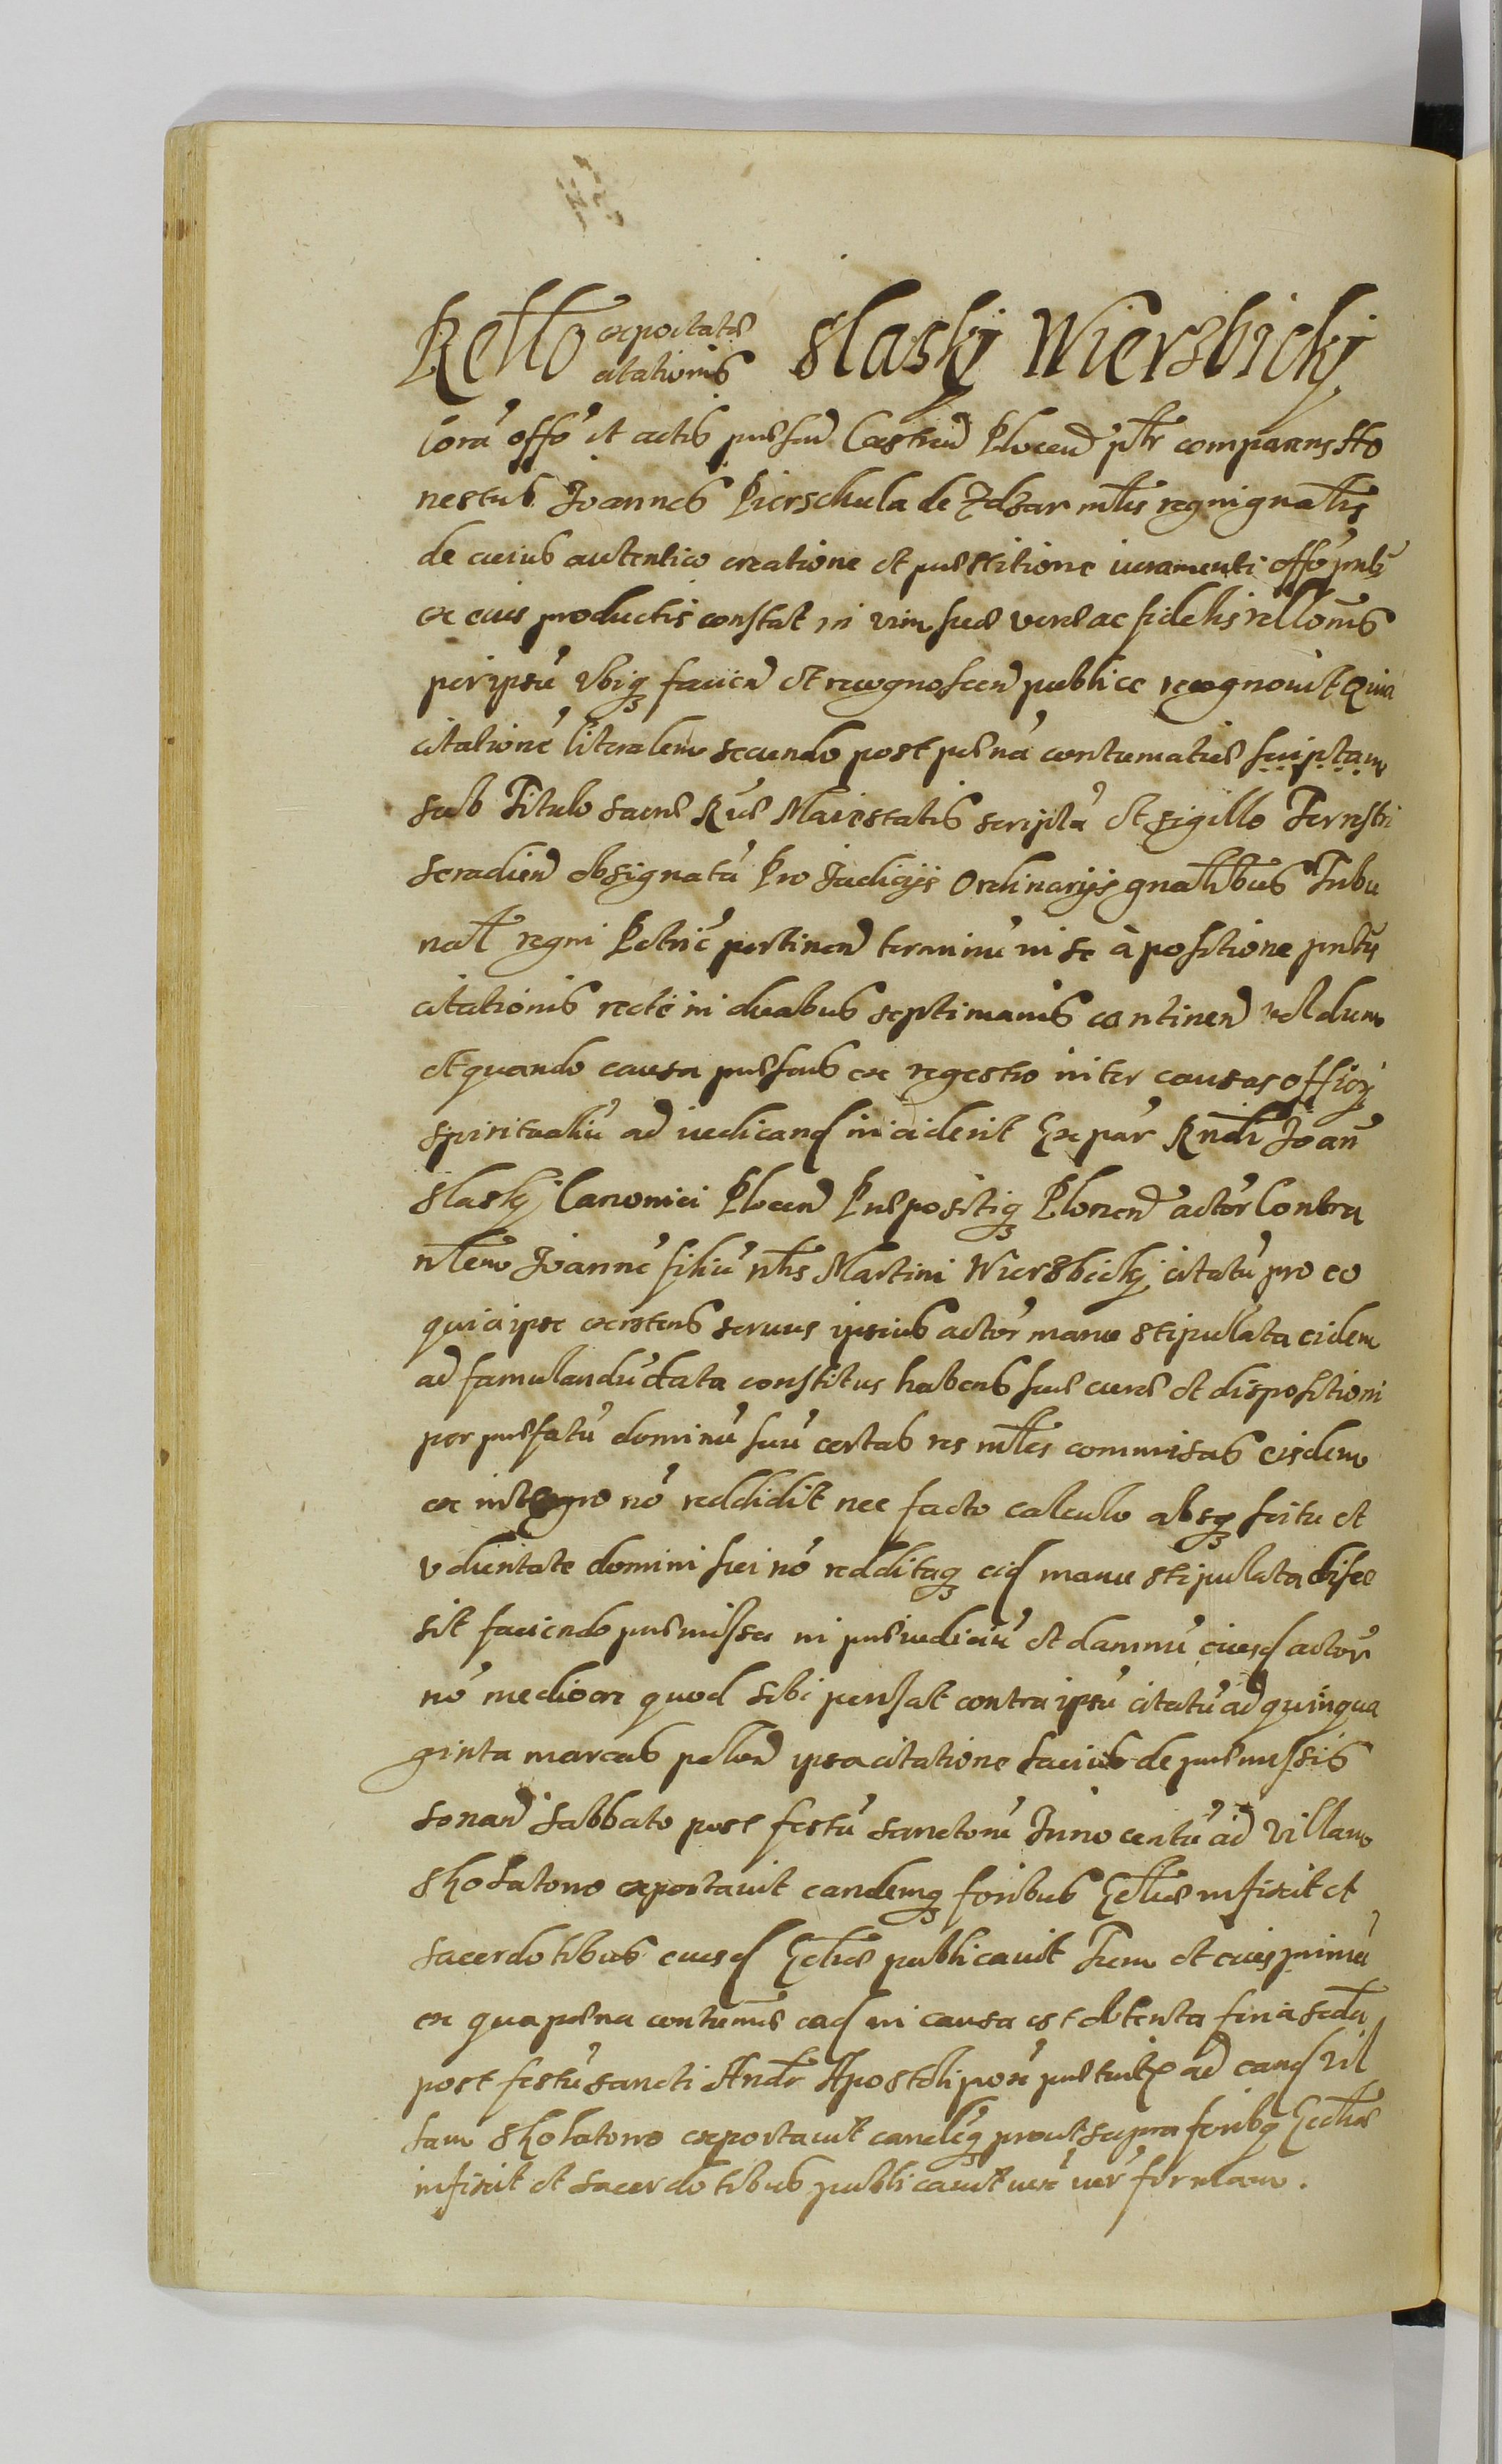 Rello exportatę citationis Slaskj Wierzbickj
Corā offō et actis pręsen̄ Castren̄ Plocen̄ pltr comparens Ho
nestus Joannes Pierschula de Zdzar mltis regni gnalis
de cuius autentico creatione et pręstitione iuramenti offō pnti
ex eius productis constat in vim suę verę ac fidelis rellonis
per ipsū vbiq₃ facien̄ et recognoscen̄ publice recognouit Quia
citationē literalem secundo post pęnā contumatię scriptam
sub Titulo sacrę Rię Maiestatis scriptā et sigillo Terrestri
seradien̄ obsignatā Pro Judicijs Ordinarijs gnalibus Tribu
nal regni Petric̄ pertinen̄ terminū in se à positione pntis
citationis recte in duabus septimanis continen̄ vel dum
et quando causa pręsens ex regestro inter causas officij
spiritualiū ad iudicand inciderit Ex par̄ Rndi Joan̄
Slaskj Canonici Plocen̄ Prępositiq₃ Plonen̄ actor̄ Contra
nlem Joannē filiū nlis Martini Wierzbickj citatū pro eo
quia ipse existens seruus ipsius actor̄ manu stipulata eidem
ad famulandū data constitus habens suę curę et dispositioni
per pręfatū dominū suū certas res mltis commissas eisdem
ex integro nō reddidit nec facto calculo absq₃ scitu et
voluntate domini sui nō redditaq₃ eid manu stipulata disces
sit faciendo pręmissa in pręiudiciū et damnū eiusd actor̄
nō mediocre quod sibi pensat contra ipsū citatū ad quinqua
ginta marcas polon̄ ipsa citatione lacius de pręmissis
sonan̄ Sabbato post festū sanctorū Innocentū ad villam
Sholatowo exportauit eandemq₃ foribus Ecclię infixit et
sacerdotibus eiusd Ecclię publicauit Tum et eius primā
ex qua pęna contumę ead in causa est obtenta feria scda
post festū sancti Andr Apostoli pore pręterito ad eand vil
lam Sholatowo exportauit eandēq₃ prout supra foribq Ecclię
infixit et sacerdotibus publicauit iux̄ iur̄ formam.